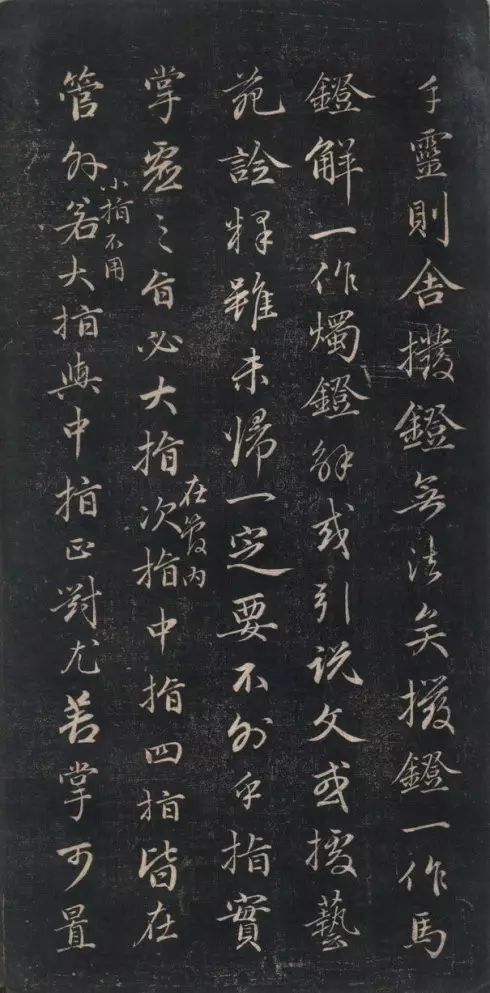 手靈則舍撥鐙無法矣撥鐙一作馬
鐙解一作燭鐙解或引說文或據藝
苑詮釋雖未歸一定要不外乎指實
掌虛之旨必大指次指中指四指皆在
在管內
管外若大指與中指正對尤善掌可置
小指不用